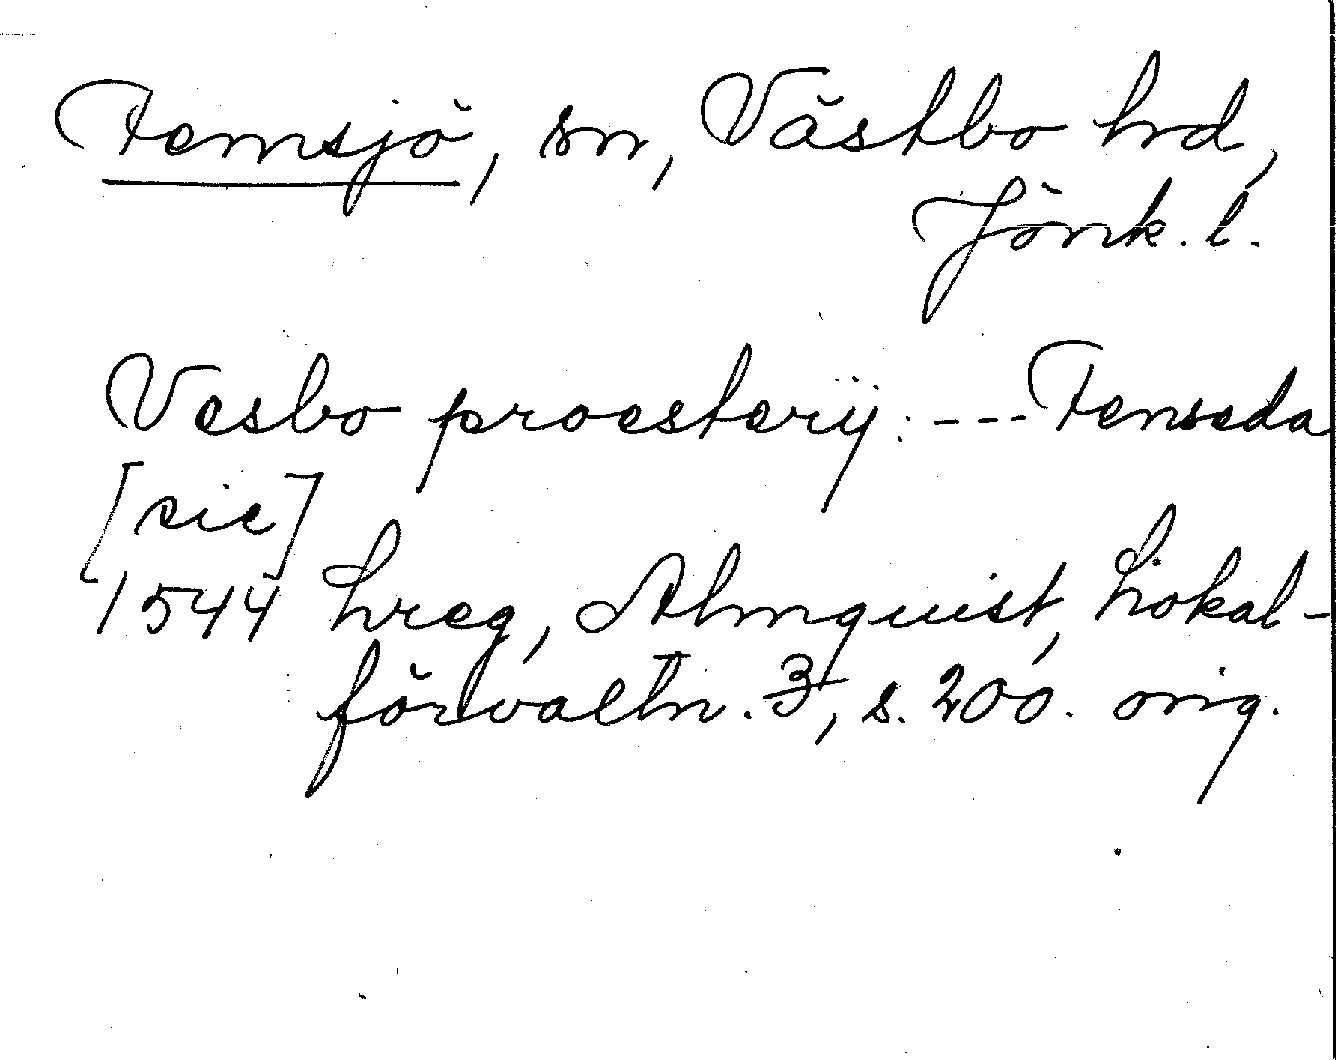 Femsjö, sn, Västbo hrd,
Jönk. l.
Vesbo proesterÿ: --- Fenseda
[sic]
1544 hreg, Almquist, Lokal-
förvaltn. 3, s. 200. orig.